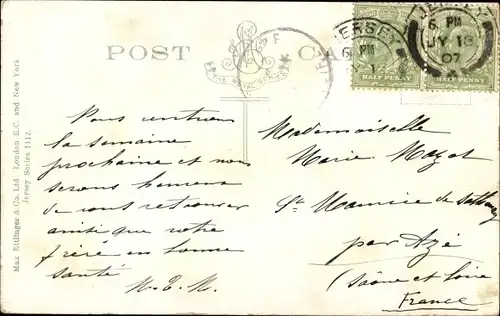 POST C
THE ROYAL SERIES
JERSEY
6 PM
JY 18
07
HALF PENNY
HALF PENNY
Max Ettlinger & Co. Ltd London E.C. and New York
Jersey Series 1112.
Nous rentrons
la semaine
prochaine et nous
serons heureux
de vous retrouver
ainsi que votre
frère en bonne
santé
Mademoiselle
Marie Mazot
St Maurice de
par Azé
(Saône et Loire
France